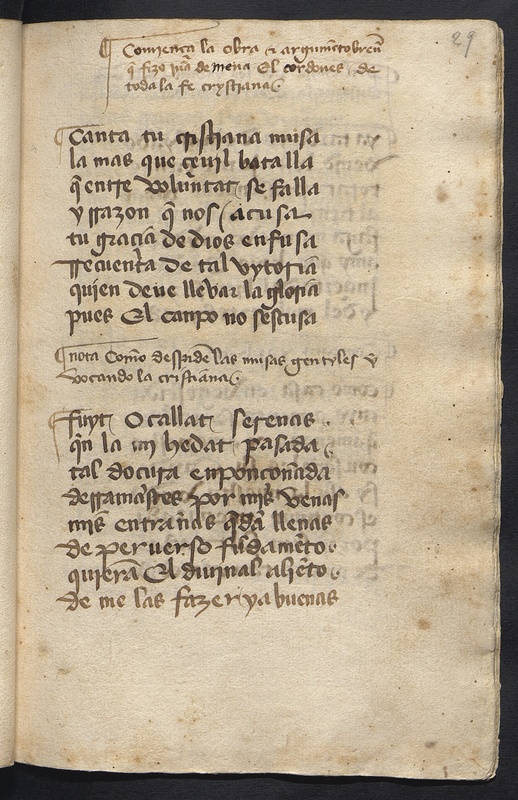 29
Comiença la obra & argumẽto breũ
q̃ fizo juã de mena El cordoues de
toda la fe crystiana
Canta tu cristiana musa
la mas que çeuil batalla
q̃ entre voluntat se falla
y rrazon q̃ nos acusa
tu graçia de dios enfusa
rrecuenta de tal vytoria
quien deue lleuar la gloria
pues El canpo no sescusa
nota Como despide las musas gentyles y
vocando la cristiana
fuyt O callat serenas
q̃n la mj hedat pasada
tal doçura enponçoñada
derramastes por mjs venas
mjs entrañas q̃dã llenas
de peruerso fũdamẽto
quierã El diujnal aliẽto
de me las fazer ya buenas